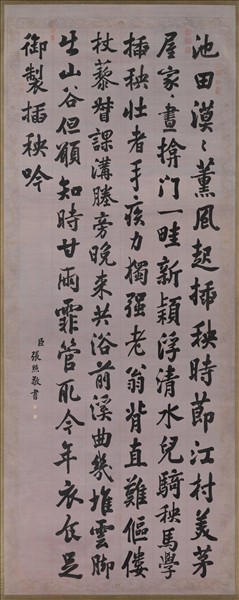 池田漠〻薰風起插秧時節江村美茅
屋家〻晝揜门一畦新穎浮清水兒騎秧馬學
插秧壯者手疾力獨强老翁背直難傴僂
杖藜督課溝塍旁晚來共浴前溪曲幾堆雲脚
生山谷但願知時甘雨霏管取今年衣食足
御製插秧吟
臣張照敬書